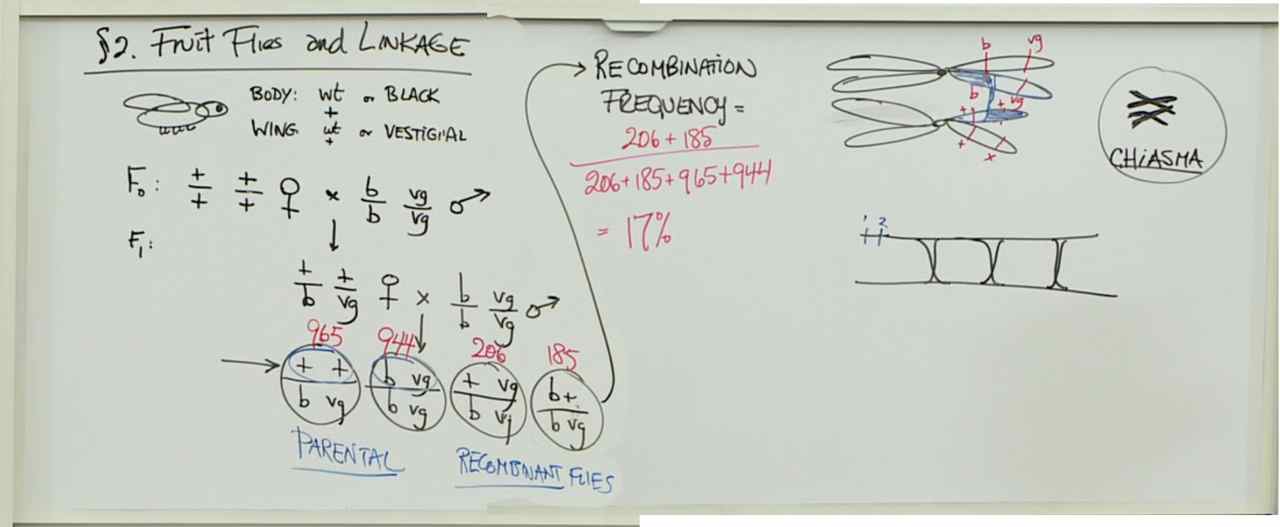 §2. Fruit Flies and LINKAGE
BODY: wt or BLACK
+
WING wt or VESTIGIAL
+
F₀: + + ♀ × b vg ♂
+ + b vg
↓
F₁:
+ + ♀ × b vg ♂
b vg b vg
↓
965 944 206 185
→ + + b vg + vg b +
b vg b vg b vg b vg
PARENTAL
RECOMBINANT FLIES
→ RECOMBINATION
FREQUENCY =
206 + 185
206+185+965+944
= 17%
b vg
b vg
+ +
+ x
CHIASMA
1 2